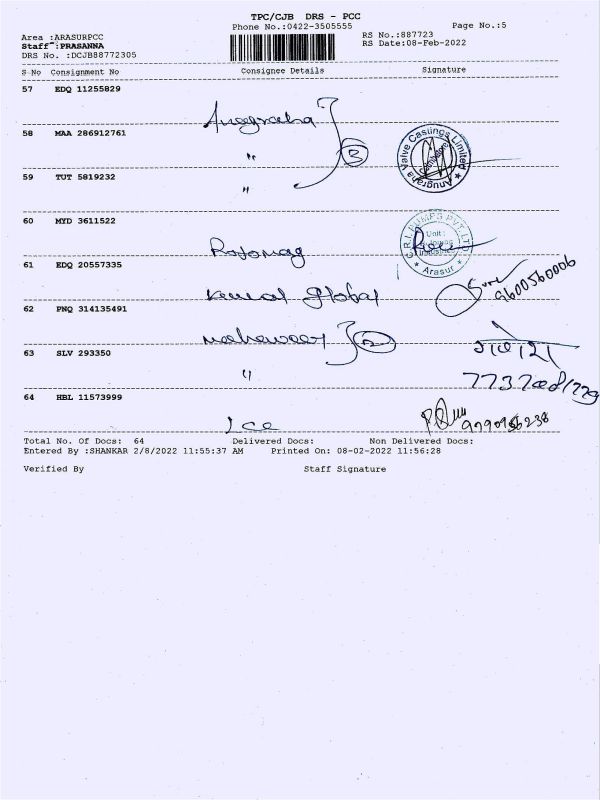 TPC/CJB DRS - PCC
Phone No.:0422-3505555 Page No.:5
Area :ARASURPCC RS No.:887723
Staff :PRASANNA RS Date:08-Feb-2022
DRS No. :DCJB88772305
S No Consignment No Consignee Details Signature
57 EDQ 11255829
Anugraha
58 MAA 286912761
" 3
Anugraha Valve Castings Limited
59 TUT 5819232
"
60 MYD 3611522
C.R.I. PUMPS PVT. LTD
Unit :
Industries
Arasur
61 EDQ 20557335
9600560006
Global
62 PNQ 314135491
2
63 SLV 293350
"
64 HBL 11573999
Total No. Of Docs: 64 Delivered Docs: Non Delivered Docs:
Entered By :SHANKAR 2/8/2022 11:55:37 AM Printed On: 08-02-2022 11:56:28
Verified By Staff Signature